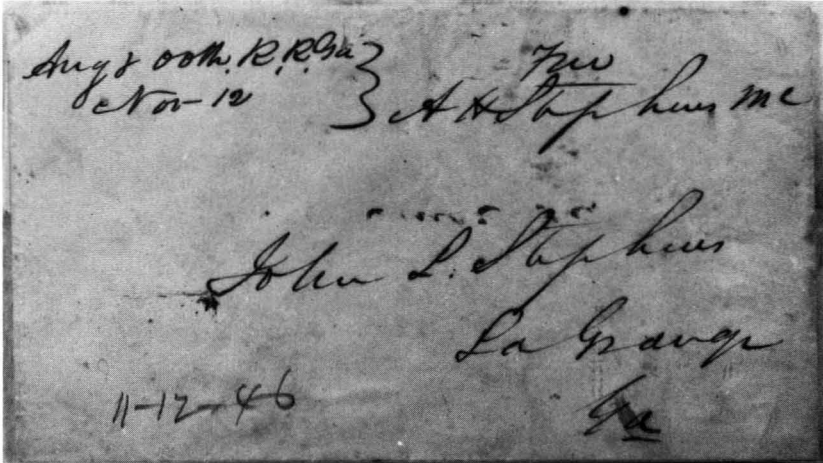 Free
Aug & 00th. R.R. Ga
Nov-12
A H Stephens MC
John L. Stephens
La Grange
Ga
11-12-46